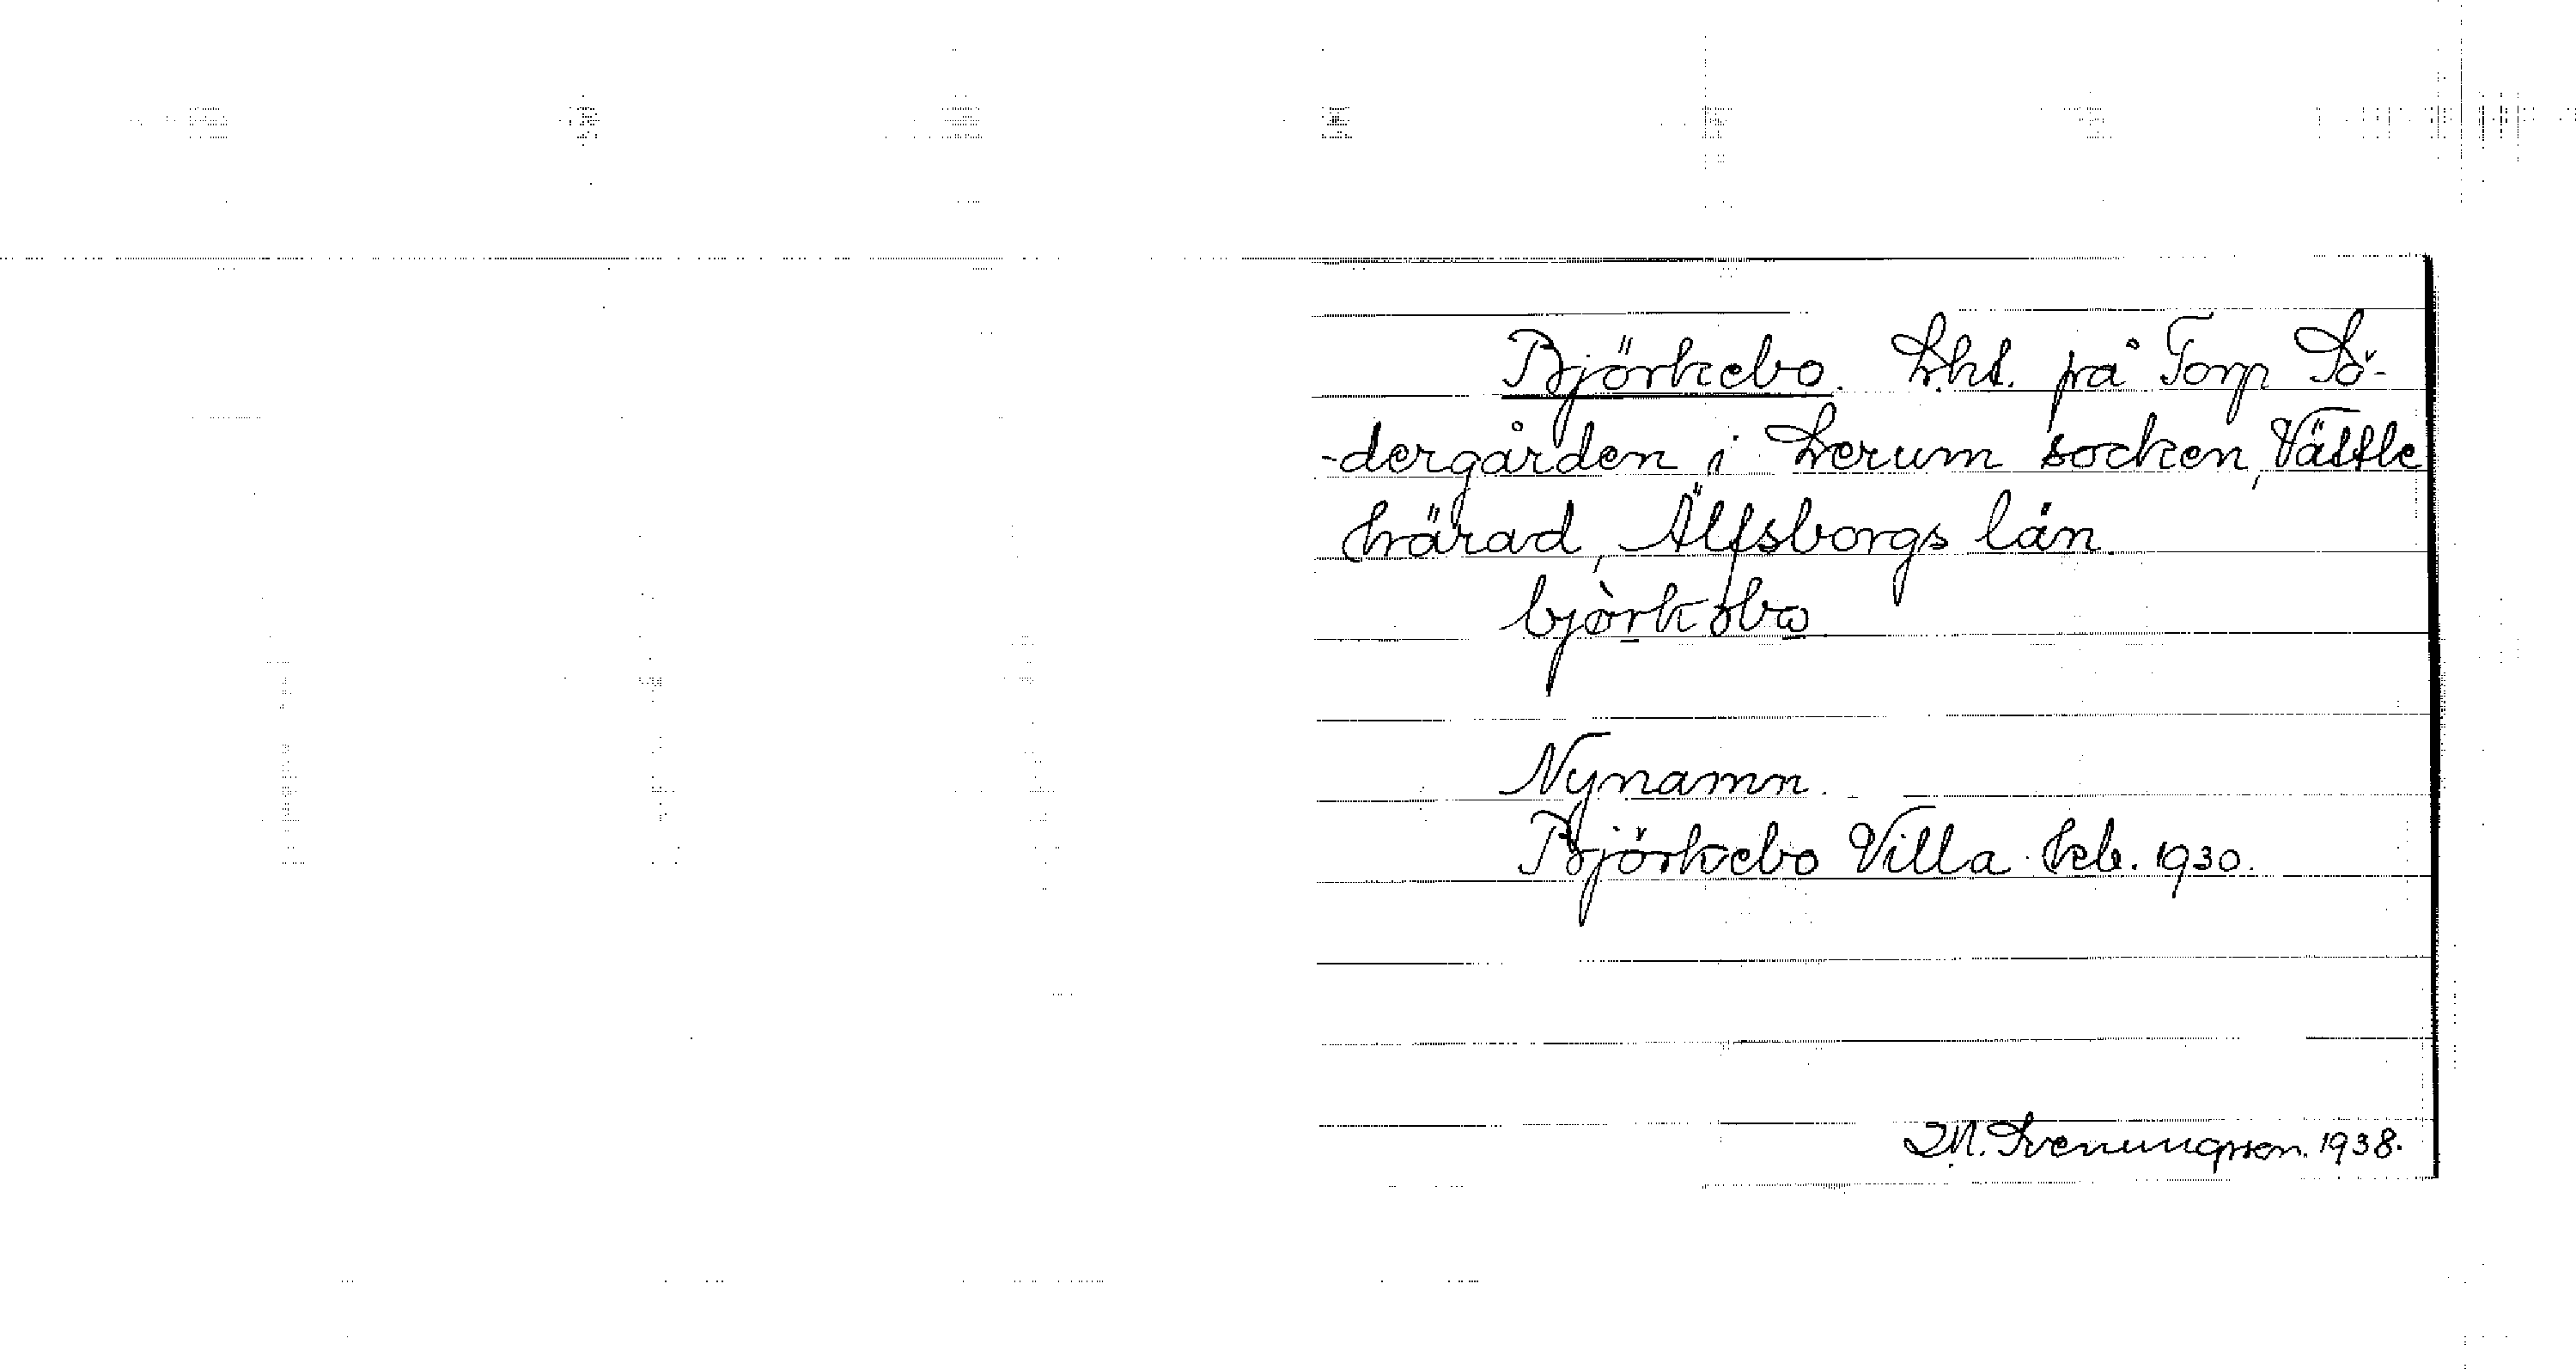 Björkebo. Lht. på Torp Sö-
-dergården i Lerum socken, Vättle
härad, Älfsborgs län
björkəbo
Nynamn.
Björkebo Villa kb. 1930.
M. Svenungsson. 1938.